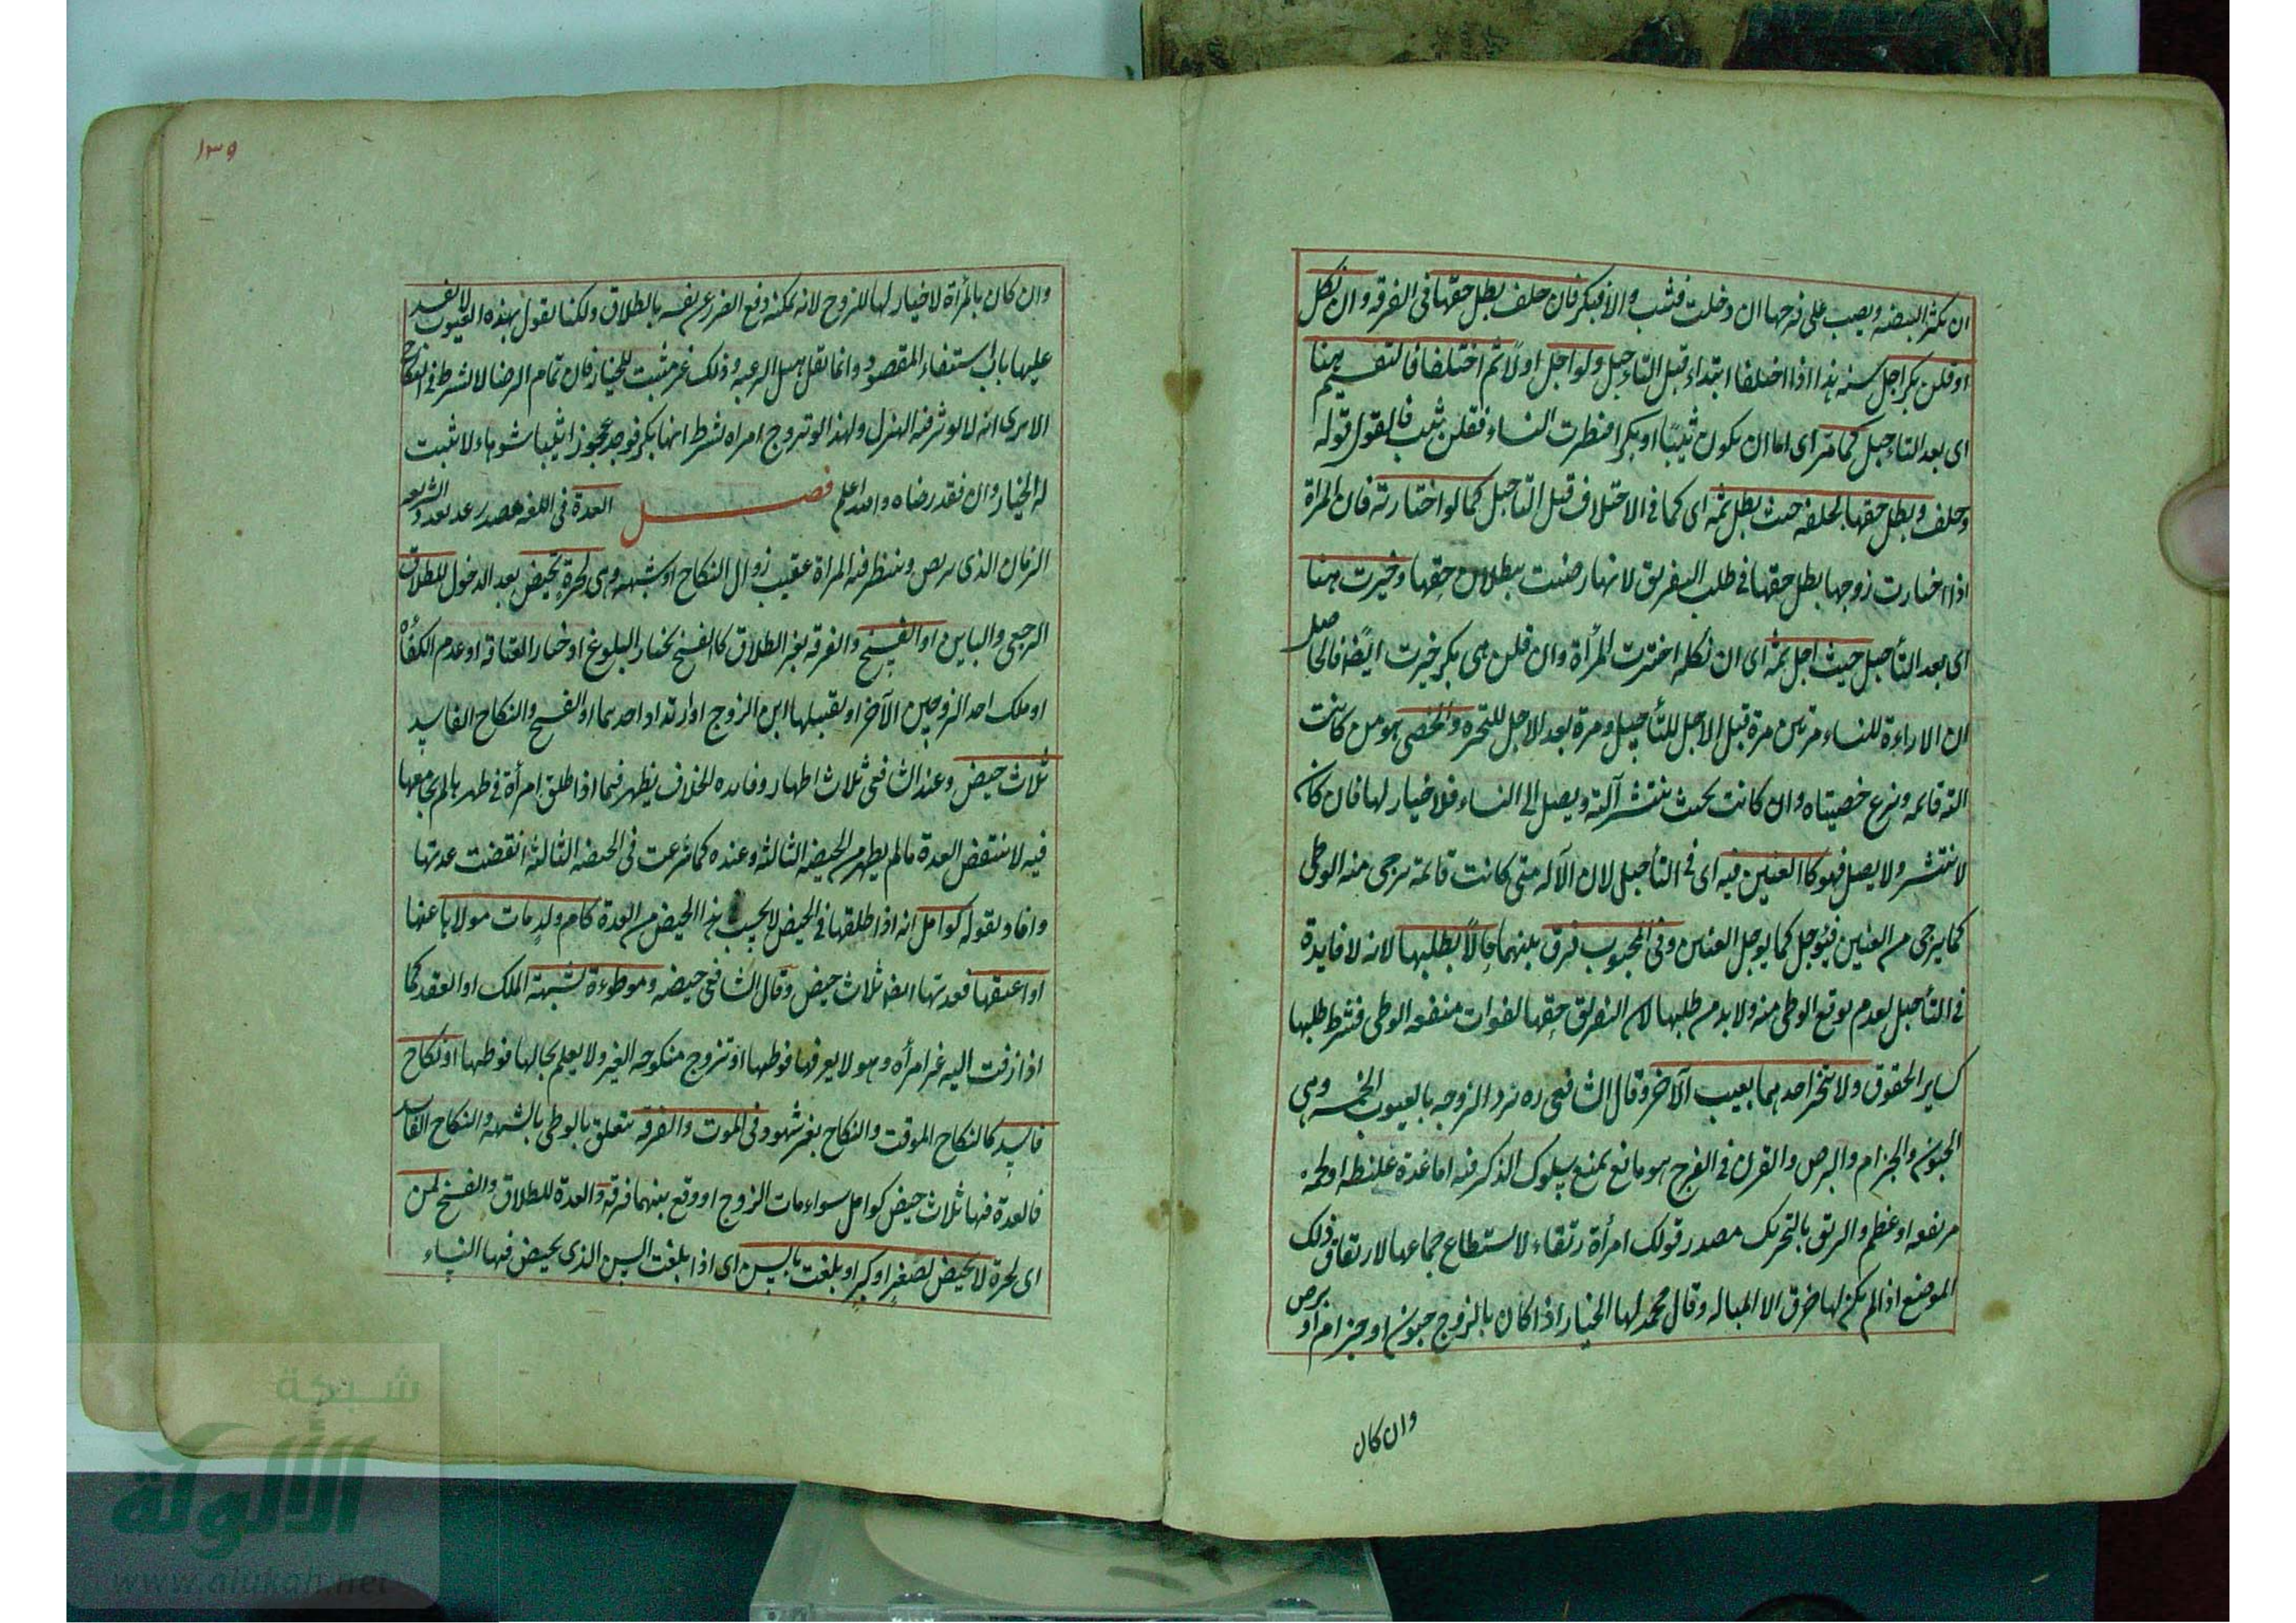 ان تكثر البيضه ويصب على فرجها ان دخلت فثيب والا فبكر فان حلف بطل حقها فى الفرقه وان نكل
او قلن بكر اجل سنه هذا اذا اختلفا ابتداء قبل التاجيل ولو اجل اولا ثم اختلفا فالتقسيم هنا
اى بعد التاجيل كما مر اى اما ان يكون ثيبا او بكرا فنظرت النساء فقلن ثيب فالقول قوله
وحلف وبطل حقها بحلفه حيث بطل ثمه اى كما فى الاختلاف قبل التاجيل كما لو اختارته فان المراة
اذا اختارت زوجها بطل حقها فى طلب التفريق لانها رضيت ببطلان حقها وخيرت هنا
اى بعد التأجيل حيث اجل ثمه اى ان نكله اخترت المرأة وان قلن هى بكر خيرت ايضا فالحاصل
ان الاراءة للنساء مرتين مرة قبل الاجل للتأجيل ومرة بعد الاجل للتخيره والخصى هو من كانت
آلته قائمه ونزع خصيتاه وان كانت بحيث ينتشر آلته ويصل الى النساء فلا خيار لها فان كان
لا ينتشر ولا يصل فهو كالعنين فيه اى فى التأجيل لان الآله متى كانت قائمة يرجى منه الوطى
كما يرجى من العنين فيؤجل كما يوجل العنين وفى المجبوب فرق بينهما حالا بطلبها لانه لا فايدة
فى التأجيل لعدم توقع الوطى منه ولا بد من طلبها لان التفريق حقها لفوات منفعه الوطى فشرط طلبها
كساير الحقوق ولا يتخير احدهما بعيب الآخر وقال الشافعى ره ترد الزوجه بالعيوب الخمسه وهى
الجنون والجذام والبرص والقرن فى الفرج هو مانع يمنع سلوك الذكر فيه اما غدة غليظه او لحمه
مرتفعه او عظم والرتق بالتحريك مصدر قولك امرأة رتقاء لا يستطاع جماعها لارتقاق ذلك
الموضع اذا لم يكن لها خرق الا المباله وقال محمد لها الخيار اذا كان بالزوج جنون او جذام او برص
وان كان
١٣٩
وان كان بالمرأة لا خيار لها للزوج لانه يمكنه دفع الضرر عن نفسه بالطلاق ولكنا نقول بهذه العيوب لا يفسد
عليها باب استيفاء المقصود وانما تقل ميل الرغبه وذلك غير مثبت للخيار فان تمام الرضا لا شرط فى النكاح
الا يرى انه لا يوثر فيه الهزل ولهذا لو تزوج امراه بشرط انها بكر فوجد عجوزا ثيبا شوهاء لا يثبت
له الخيار وان فقد رضاه والله اعلم فصل العدة فى اللغه مصدر عد يعد وفى الشريعه
الزمان الذى يربص وينتظر فيه المراة عقيب زوال النكاح او شبهه وهى لحرة تحيض بعد الدخول للطلاق
الرجعى والباين او الفسخ والفرقه بغير الطلاق كالفسخ بخيار البلوغ او خيار العتاقه او عدم الكفاه
او ملك احد الزوجين الآخر او تقبيلها ابن الزوج او ارتداد احدهما او الفسخ والنكاح الفاسد
ثلاث حيض وعند الشافعى ثلاث اطهار وفايده الخلاف يظهر فيما اذا طلق امرأة فى طهر ما لم يجامعها
فيه لا تنقض العدة ما لم يطهر من الحيضه الثالثه وعنده كما شرعت فى الحيضه الثالثة انقضت عدتها
وافاد بقوله كوامل انه اذا طلقها فى الحيض لا يحسب هذا الحيض من العدة كام ولد مات مولاها عنها
او اعتقها فعدتها ايضا ثلاث حيض وقال الشافعى حيضه وموطوءة بشبهة الملك او العقد كما
اذا زفت اليه غير امرأه وهو لا يعرفها فوطها او تزوج منكوحه الغير ولا يعلم بحالها فوطها او نكاح
فاسد كالنكاح الموقت والنكاح بغير شهود وفى الموت والفرقه يتعلق بالوطى بالشبهه والنكاح الفاسد
فالعدة فيها ثلاث حيض كوامل سواء مات الزوج او وقع بينهما فرقه والعدة للطلاق والفسخ لمن
اى لحرة لا تحيض لصغر او كبر او بلغت بالسن اى اذا بلغت السن الذى يحيض فيها النساء
شبكة
الألوكة
www.alukah.net